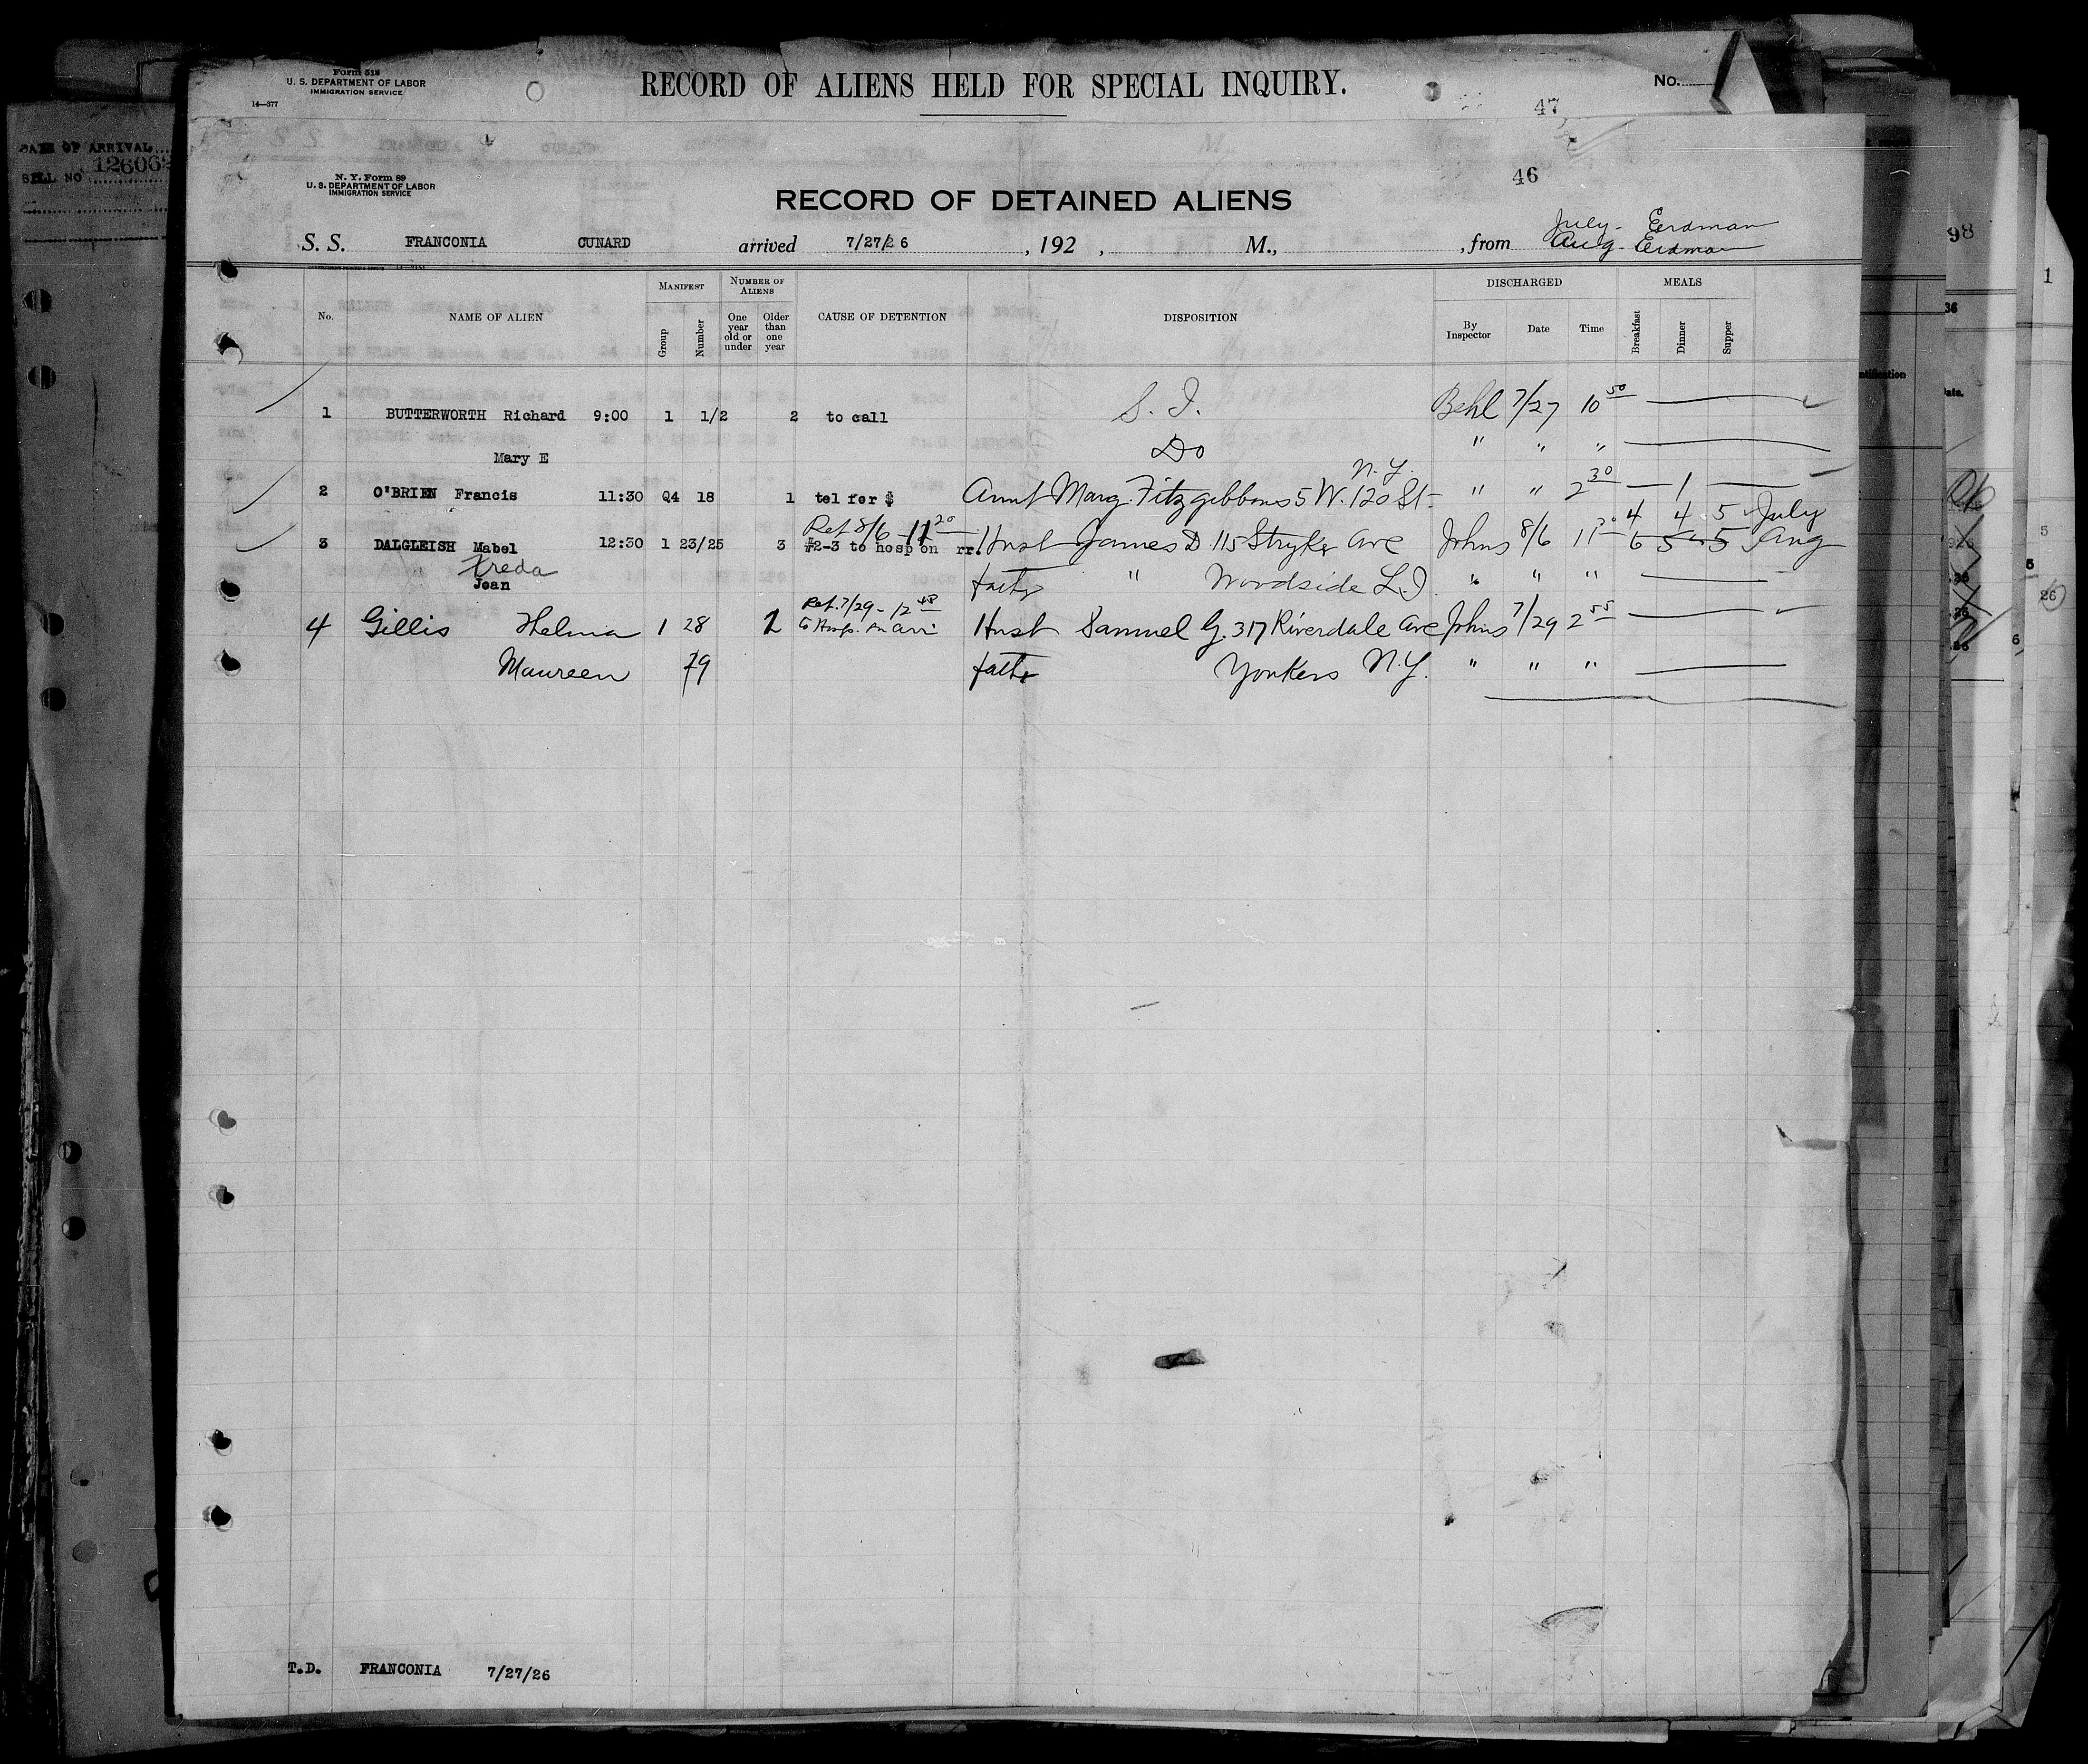 Form 518
U. S. DEPARTMENT OF LABOR
IMMIGRATION SERVICE
14—377
RECORD OF ALIENS HELD FOR SPECIAL INQUIRY.
No.
47
DATE OF ARRIVAL
BILL NO 12606
N. Y. Form 89
U. S. DEPARTMENT OF LABOR
IMMIGRATION SERVICE
46
RECORD OF DETAINED ALIENS
July - Erdman
S. S. FRANCONIA CUNARD arrived 7/27/26, 192 , M., , from Aug - Erdman
98
No. NAME OF ALIEN MANIFEST Group Number NUMBER OF ALIENS One year old or under Older than one year CAUSE OF DETENTION DISPOSITION DISCHARGED By Inspector Date Time MEALS Breakfast Dinner Supper
1 BUTTERWORTH Richard 9:00 1 1/2 2 to call S. I. Behl 7/27 10 50
Mary E Do " " "
N.Y.
2 O'BRIEN Francis 11:30 Q4 18 1 tel for $ Aunt Marg. Fitzgibbons 5 W. 120 St. " " 2 30 — 1 —
Ret. 8/6 - 11 20 4 4 5 July
3 DALGLEISH Mabel 12:30 1 23/25 3 #2-3 to hosp on rr. Husb James D 115 Stryker Ave Johns 8/6 11 20 6 5 5 Aug
Freda
Jean fathr " Woodside L.I. " " "
Ret. 7/29 - 12 48
4 Gillis Thelma 1 28 2 to Hosp. on arri Husb Samuel G. 317 Riverdale Ave Johns 7/29 2 55
Maureen 29 fathr Yonkers N.Y. " " "
T.D. FRANCONIA 7/27/26